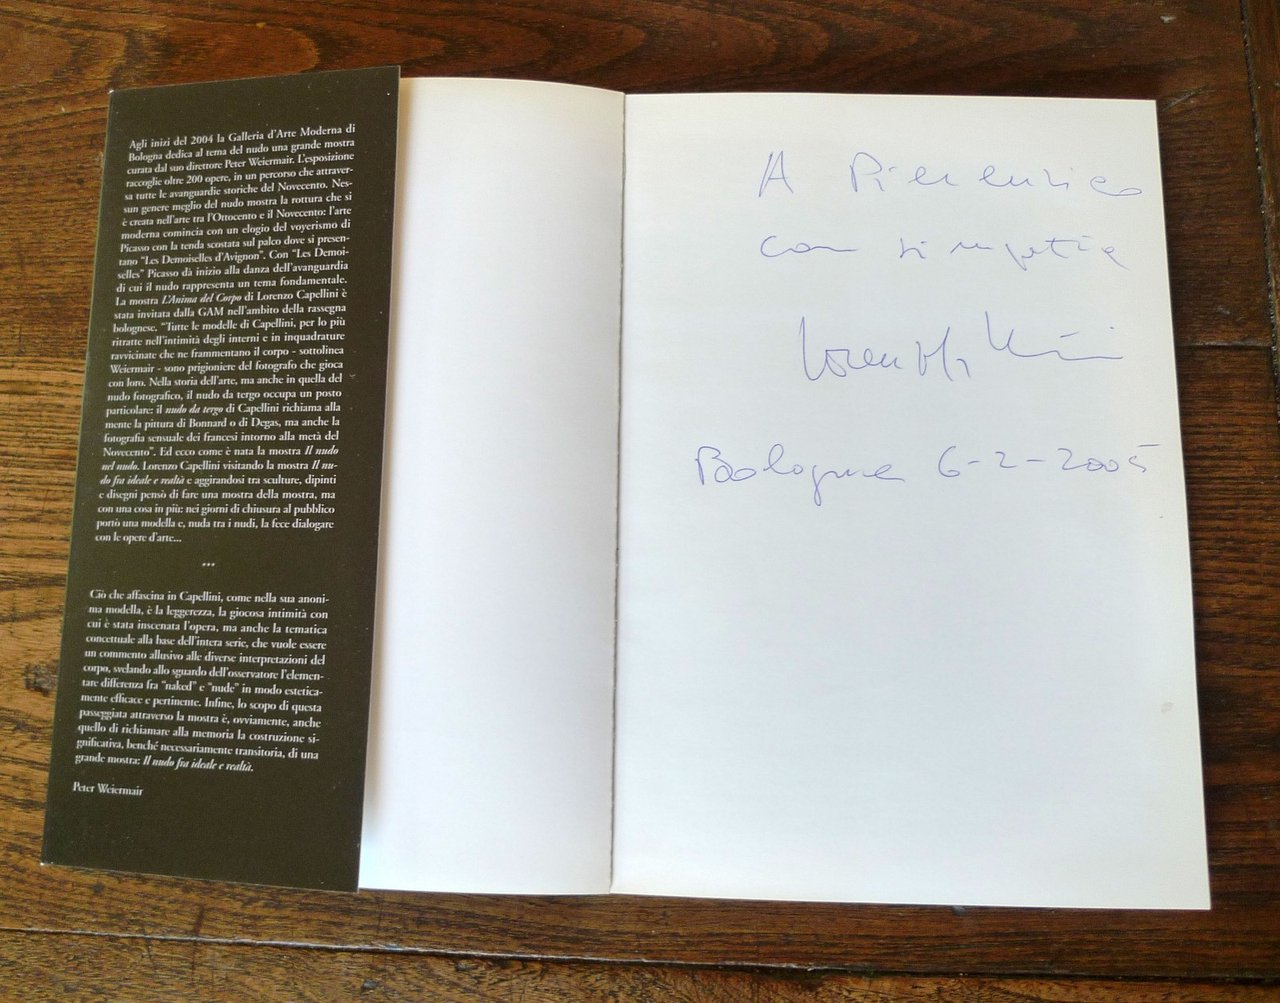 Agli inizi del 2004 la Galleria d'Arte Moderna di
Bologna dedica al tema del nudo una grande mostra
curata dal suo direttore Peter Weiermair. L'esposizione
raccoglie oltre 200 opere, in un percorso che attraver-
sa tutte le avanguardie storiche del Novecento. Nes-
sun genere meglio del nudo mostra la rottura che si
è creata nell'arte tra l'Ottocento e il Novecento: l'arte
moderna comincia con un elogio del voyerismo di
Picasso con la tenda scostata sul palco dove si presen-
tano "Les Demoiselles d'Avignon". Con "Les Demoi-
selles" Picasso dà inizio alla danza dell'avanguardia
di cui il nudo rappresenta un tema fondamentale.
La mostra L'Anima del Corpo di Lorenzo Capellini è
stata invitata dalla GAM nell'ambito della rassegna
bolognese. "Tutte le modelle di Capellini, per lo più
ritratte nell'intimità degli interni e in inquadrature
ravvicinate che ne frammentano il corpo - sottolinea
Weiermair - sono prigioniere del fotografo che gioca
con loro. Nella storia dell'arte, ma anche in quella del
nudo fotografico, il nudo da tergo occupa un posto
particolare: il nudo da tergo di Capellini richiama alla
mente la pittura di Bonnard o di Degas, ma anche la
fotografia sensuale dei francesi intorno alla metà del
Novecento". Ed ecco come è nata la mostra Il nudo
nel nudo. Lorenzo Capellini visitando la mostra Il nu-
do fra ideale e realtà e aggirandosi tra sculture, dipinti
e disegni pensò di fare una mostra della mostra, ma
con una cosa in più: nei giorni di chiusura al pubblico
portò una modella e, nuda tra i nudi, la fece dialogare
con le opere d'arte...
***
Ciò che affascina in Capellini, come nella sua anoni-
ma modella, è la leggerezza, la giocosa intimità con
cui è stata inscenata l'opera, ma anche la tematica
concettuale alla base dell'intera serie, che vuole essere
un commento allusivo alle diverse interpretazioni del
corpo, svelando allo sguardo dell'osservatore l'elemen-
tare differenza fra "naked" e "nude" in modo estetica-
mente efficace e pertinente. Infine, lo scopo di questa
passeggiata attraverso la mostra è, ovviamente, anche
quello di richiamare alla memoria la costruzione si-
gnificativa, benché necessariamente transitoria, di una
grande mostra: Il nudo fra ideale e realtà.
Peter Weiermair
A Pierenrico
con simpatia
Bologna 6-2-2005